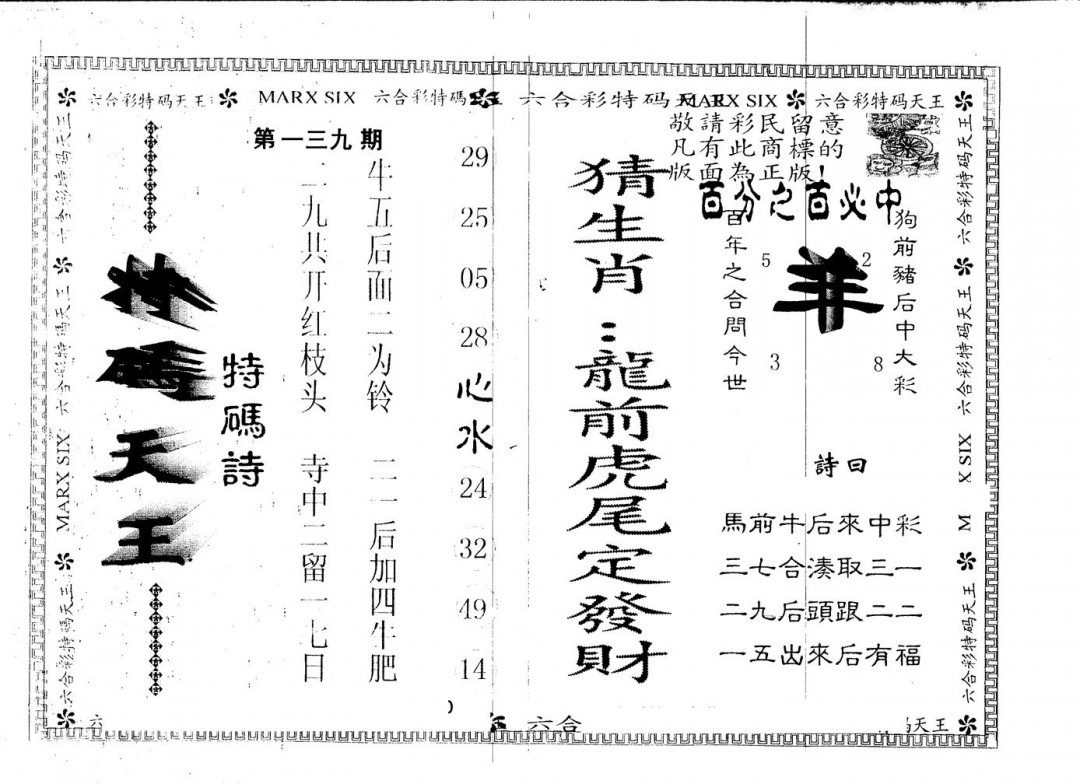 六合彩特码天王 MARX SIX 六合彩特碼 六合彩特码天 MARX SIX 六合彩特码天王
第一三九期
敬請彩民留意
凡有此商標的
版面為正版!
百分之百必中
狗前豬后中大彩
羊
5
2
3
8
百年之合問今世
詩曰
馬前牛后來中彩
三七合湊取三一
二九后頭跟二二
一五出來后有福
猜生肖:龍前虎尾定發財
29
25
05
28
心水
24
32
49
14
牛五后面二为铃 二一后加四牛肥
二九共开红枝头 寺中二留一七日
特碼詩
特碼天王
六合彩特码天王 六合彩特码天王 MARX SIX 六合彩特码天王
六合彩特码天王 六合彩特码天王 X SIX M 六合彩特码天王
六 六合 天王